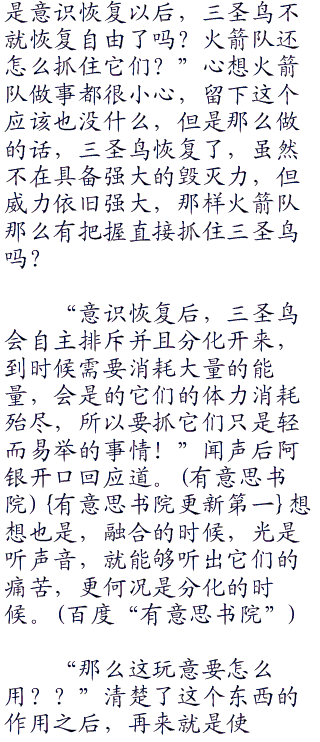 是意识恢复以后，三圣鸟不
就恢复自由了吗？火箭队还
怎么抓住它们？”心想火箭
队做事都很小心，留下这个
应该也没什么，但是那么做
的话，三圣鸟恢复了，虽然
不在具备强大的毁灭力，但
威力依旧强大，那样火箭队
那么有把握直接抓住三圣鸟
吗？
“意识恢复后，三圣鸟
会自主排斥并且分化开来，
到时候需要消耗大量的能
量，会是的它们的体力消耗
殆尽，所以要抓它们只是轻
而易举的事情！”闻声后阿
银开口回应道。(有意思书
院) {有意思书院更新第一} 想
想也是，融合的时候，光是
听声音，就能够听出它们的
痛苦，更何况是分化的时
候。(百度“有意思书院”)
“那么这玩意要怎么
用？？”清楚了这个东西的
作用之后，再来就是使